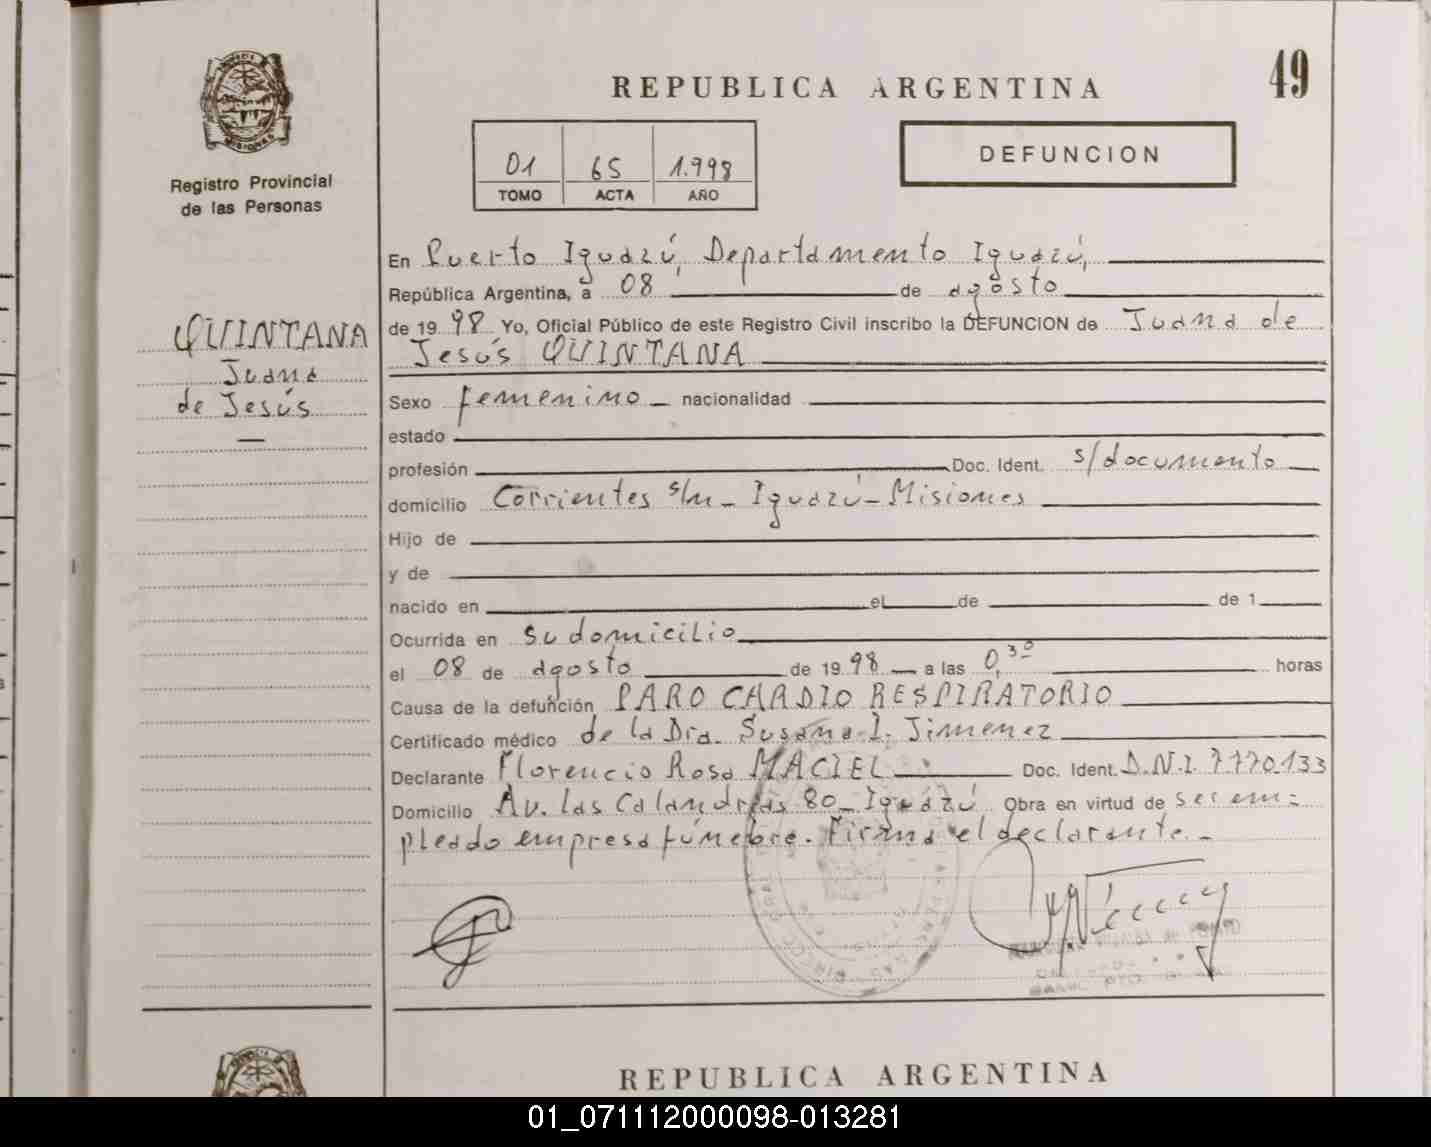 REPUBLICA ARGENTINA
49
01 65 1.998
TOMO ACTA AÑO
DEFUNCION
MISIONES
Registro Provincial
de las Personas
QUINTANA
Juana
de Jesús
En Puerto Iguazú, Departamento Iguazú,
República Argentina, a 08 de agosto
de 19 98 Yo, Oficial Público de este Registro Civil inscribo la DEFUNCION de Juana de
Jesús QUINTANA
Sexo femenino nacionalidad
estado
profesión Doc. Ident. s/documento
domicilio Corrientes s/n - Iguazú - Misiones
Hijo de
y de
nacido en el de de 1
Ocurrida en su domicilio
el 08 de agosto de 19 98 a las 0,30 horas
Causa de la defunción PARO CARDIO RESPIRATORIO
Certificado médico de la Dra. Susana I. Jimenez
Declarante Florencio Rosa MACIEL Doc. Ident. D.N.I. 7770133
Domicilio Av. Las Calandrias 80 - Iguazú Obra en virtud de ser em=
pleado empresa fúnebre. Firma el declarante. -
REPUBLICA ARGENTINA
01_071112000098-013281